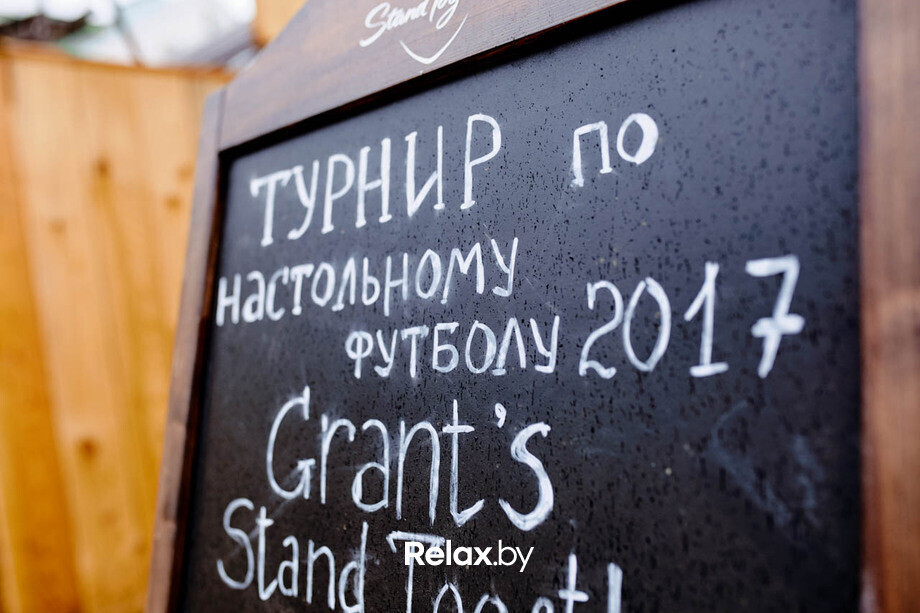 Stand Tog
ТУРНИР ПО
НАСТОЛЬНОМУ
ФУТБОЛУ 2017
Grant's
Stand Toget
Relax.by